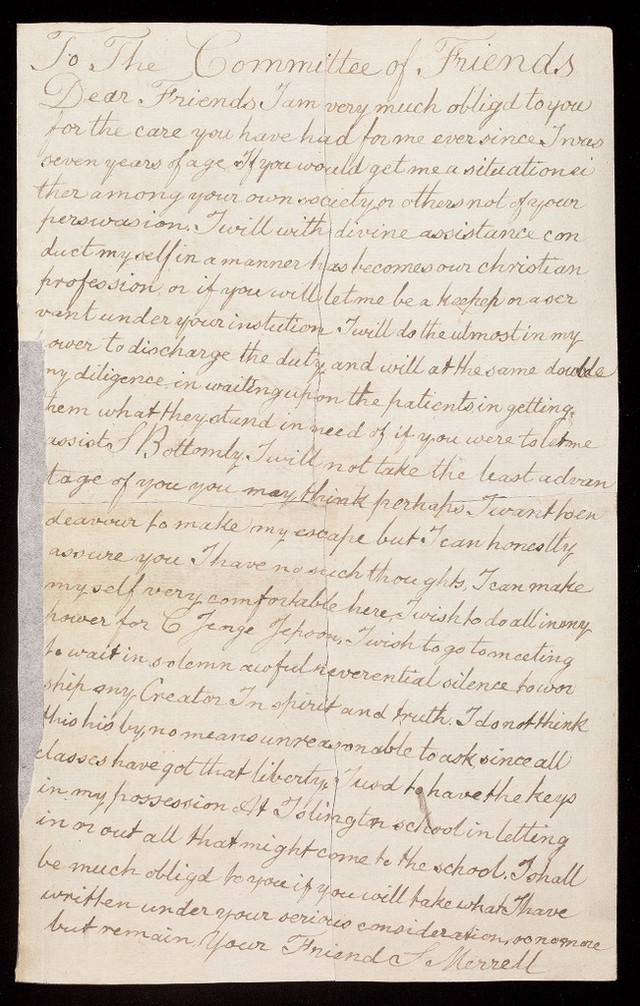 To The Committee of Friends
Dear Friends, I am very much obligd to you
for the care you have had for me ever since I was
seven years of age. If you would get me a situation ei
ther among your own society, or others not of your
perswasion. I will with divine assistance con
duct myself in a manner has becomes our christian
profession, or if you will let me be a keepep or a ser
vant under your instution I will do the utmost in my
power to discharge the duty, and will at the same double
my diligence, in waiting upon the patients in getting,
them what they stand in need of, if you were to let me
assist S Bottomly I will not take the least advan
tage of you you may think perhaps, I want to en
deavour to make my escape but I can honestly
assure you I have no such thoughts, I can make
myself very comfortable here, I wish to do all in my
power for C Jenge I wish to go to meeting
to wait in solemn awful reverential silence to wor
ship my Creator In spirit and truth. I do not think
this his by, no means unreasonable to ask, since all
classes have got that liberty, I usd to have the keys
in my possession At Islington school in letting
in or out all that might come to the school. I shall
be much obligd to you if you will take what I have
written under your serious consideration, so no more
but remain, Your Friend S Merrell